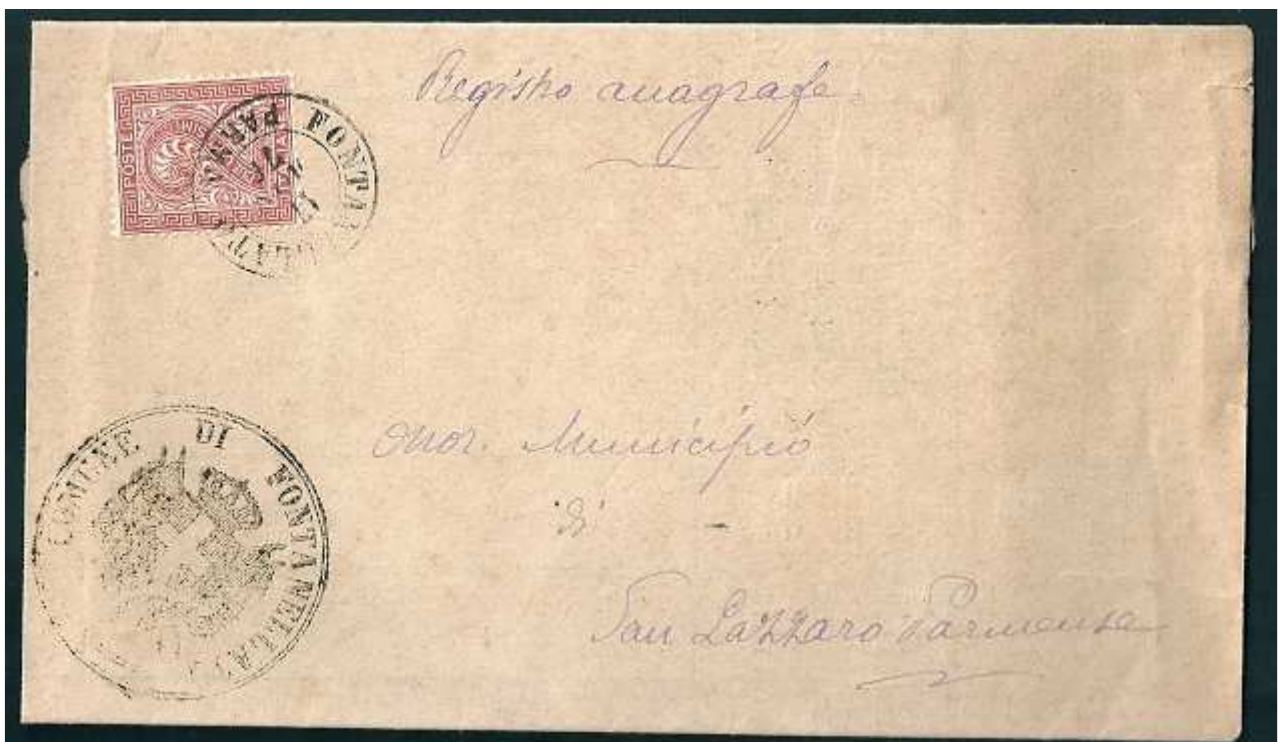 Registro anagrafe
POSTE ITALIANE
FONTANELLATO
PARMA
Onor. Municipio
di
San Lazzaro Parmense
COMUNE DI FONTANELLATO